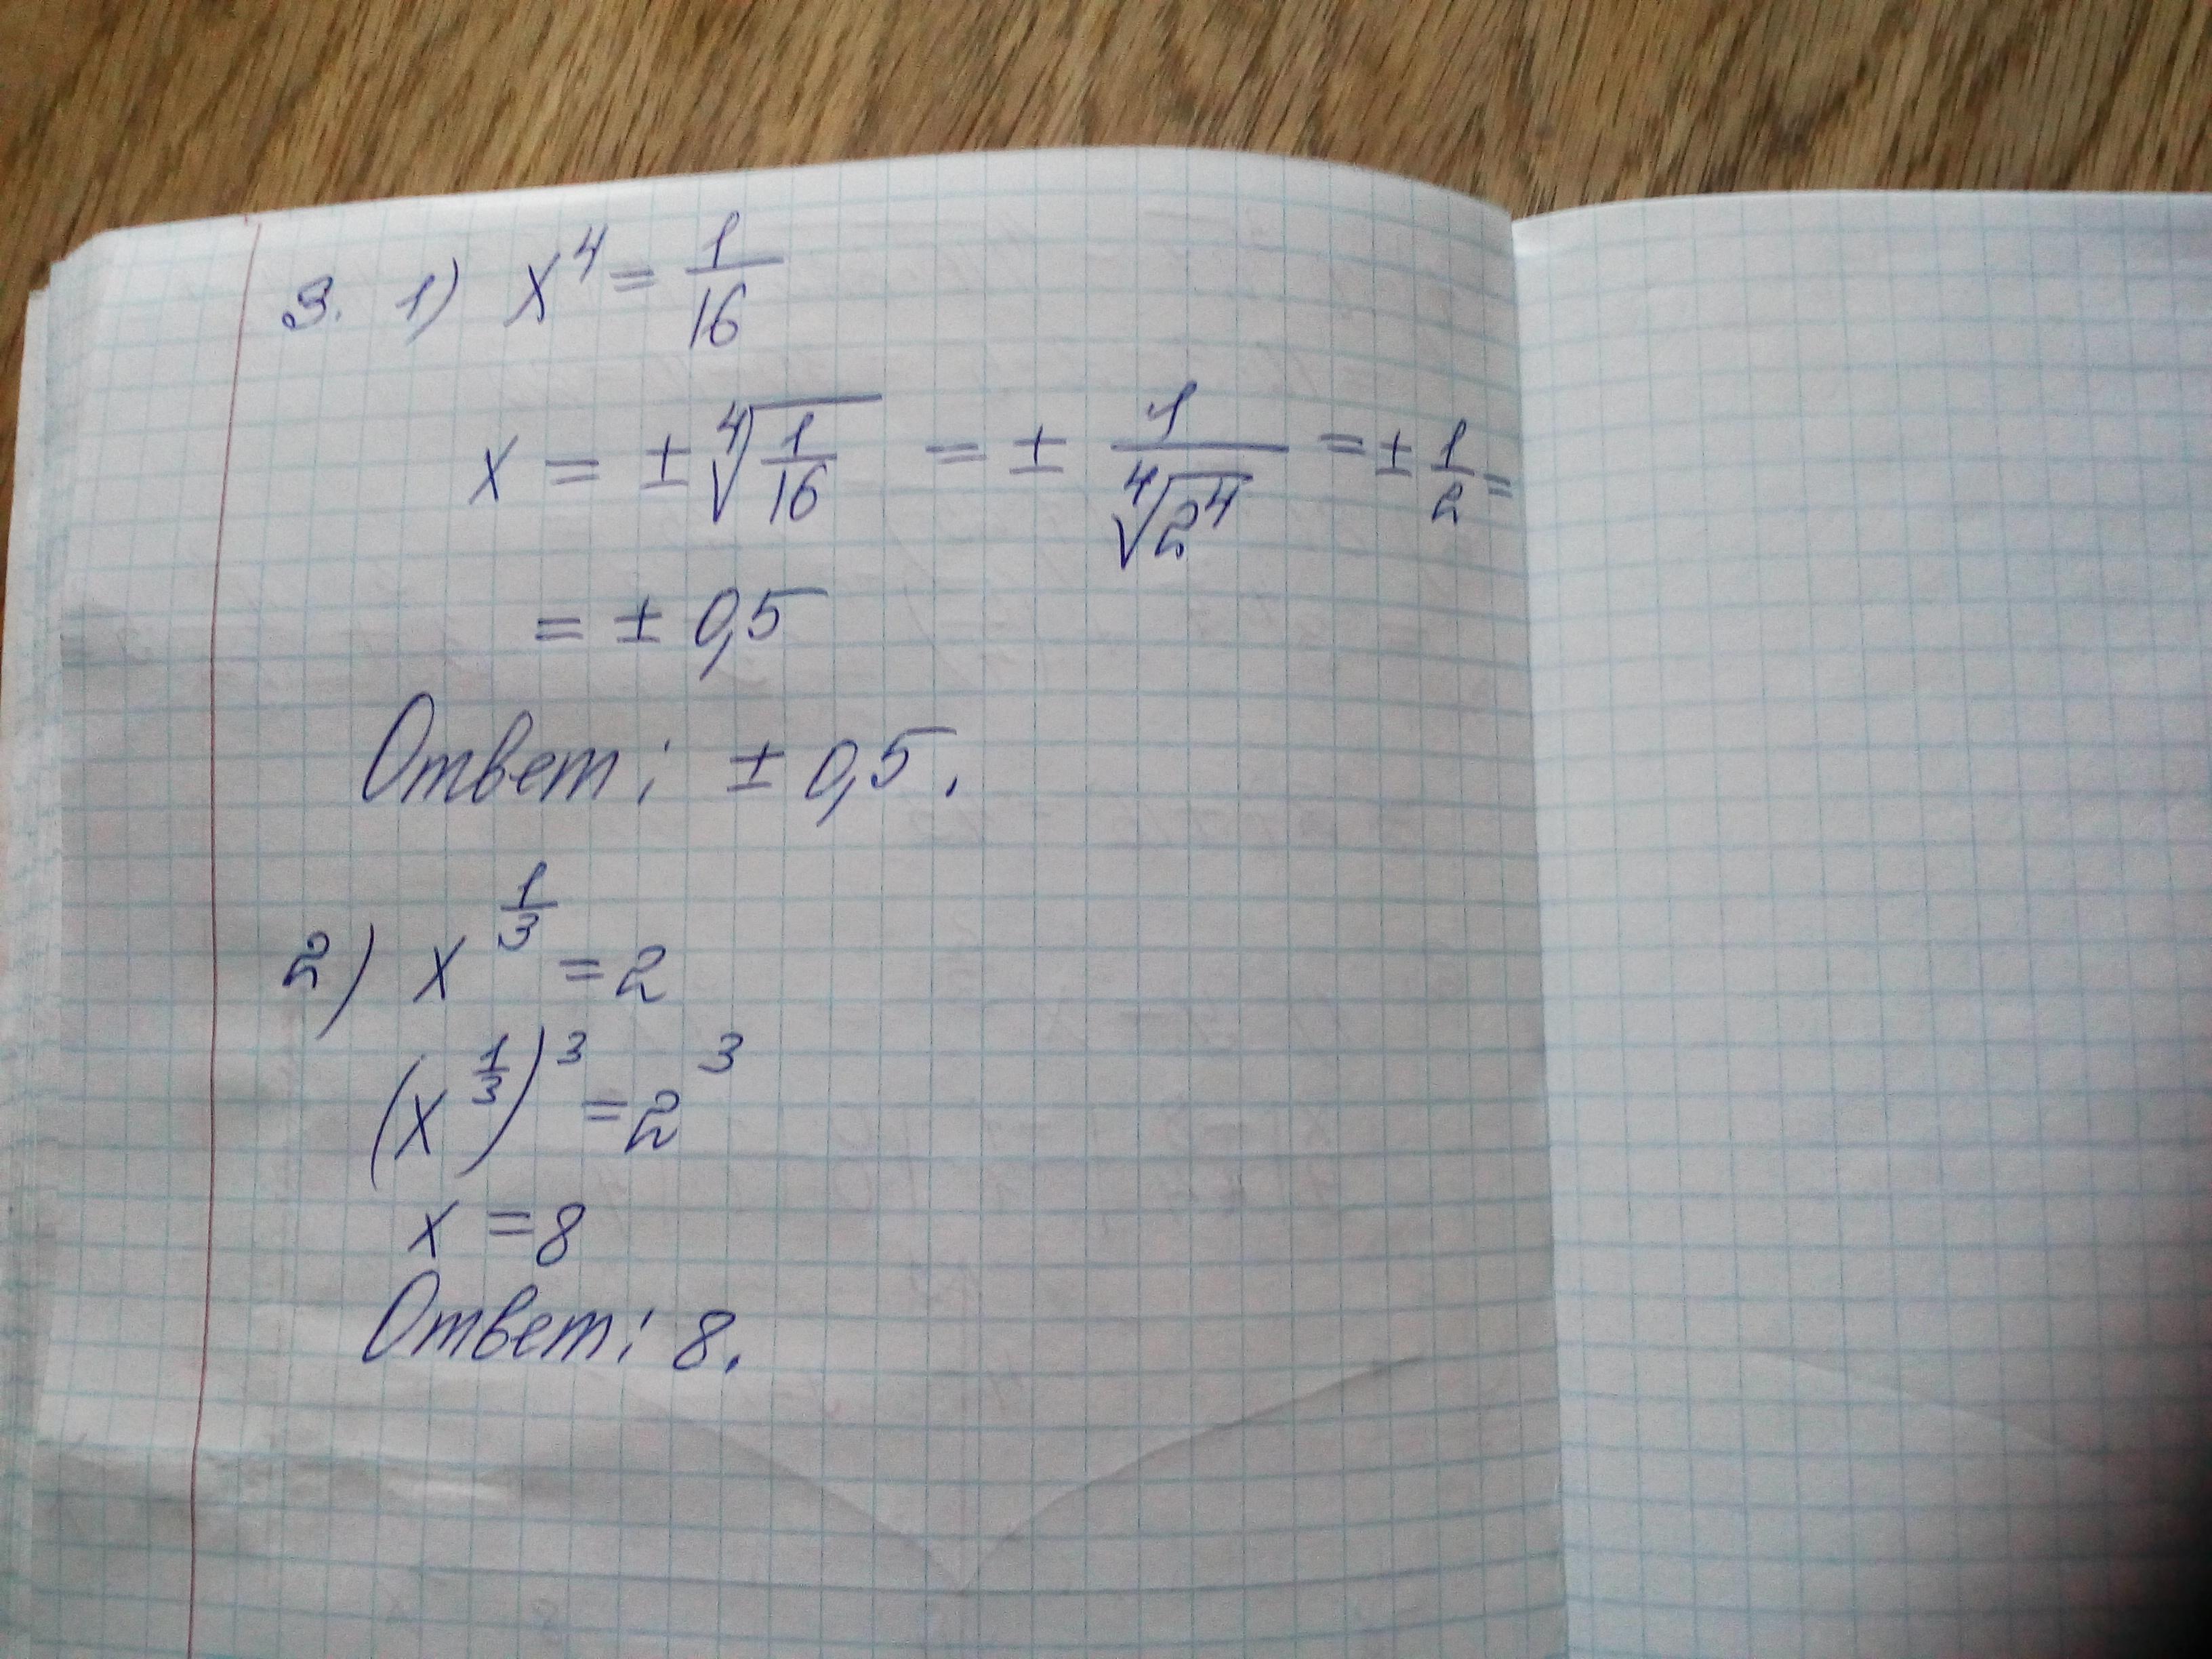 3. 1) x⁴ = 1/16
x = ± ⁴√(1/16) = ± 1/⁴√(2⁴) = ± 1/2 =
= ± 0,5
Ответ: ± 0,5.
2) x^(1/3) = 2
(x^(1/3))³ = 2³
x = 8
Ответ: 8.